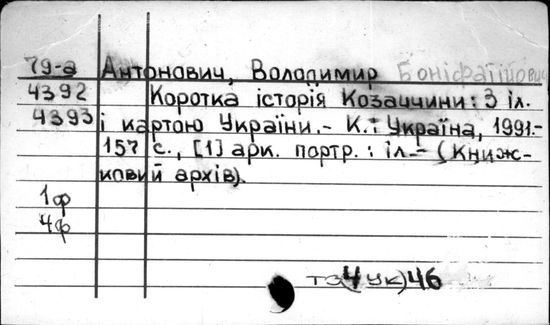 79-а Антонович, Володимир Боніфатійович
4392 Коротка історія Козаччини: З іл.
4393 і картою України.- К.: Україна, 1991.-
157 с., [1] арк. портр.: іл.- (Книж-
ковий архів).
1ф
4ф
Т3(4УК)46